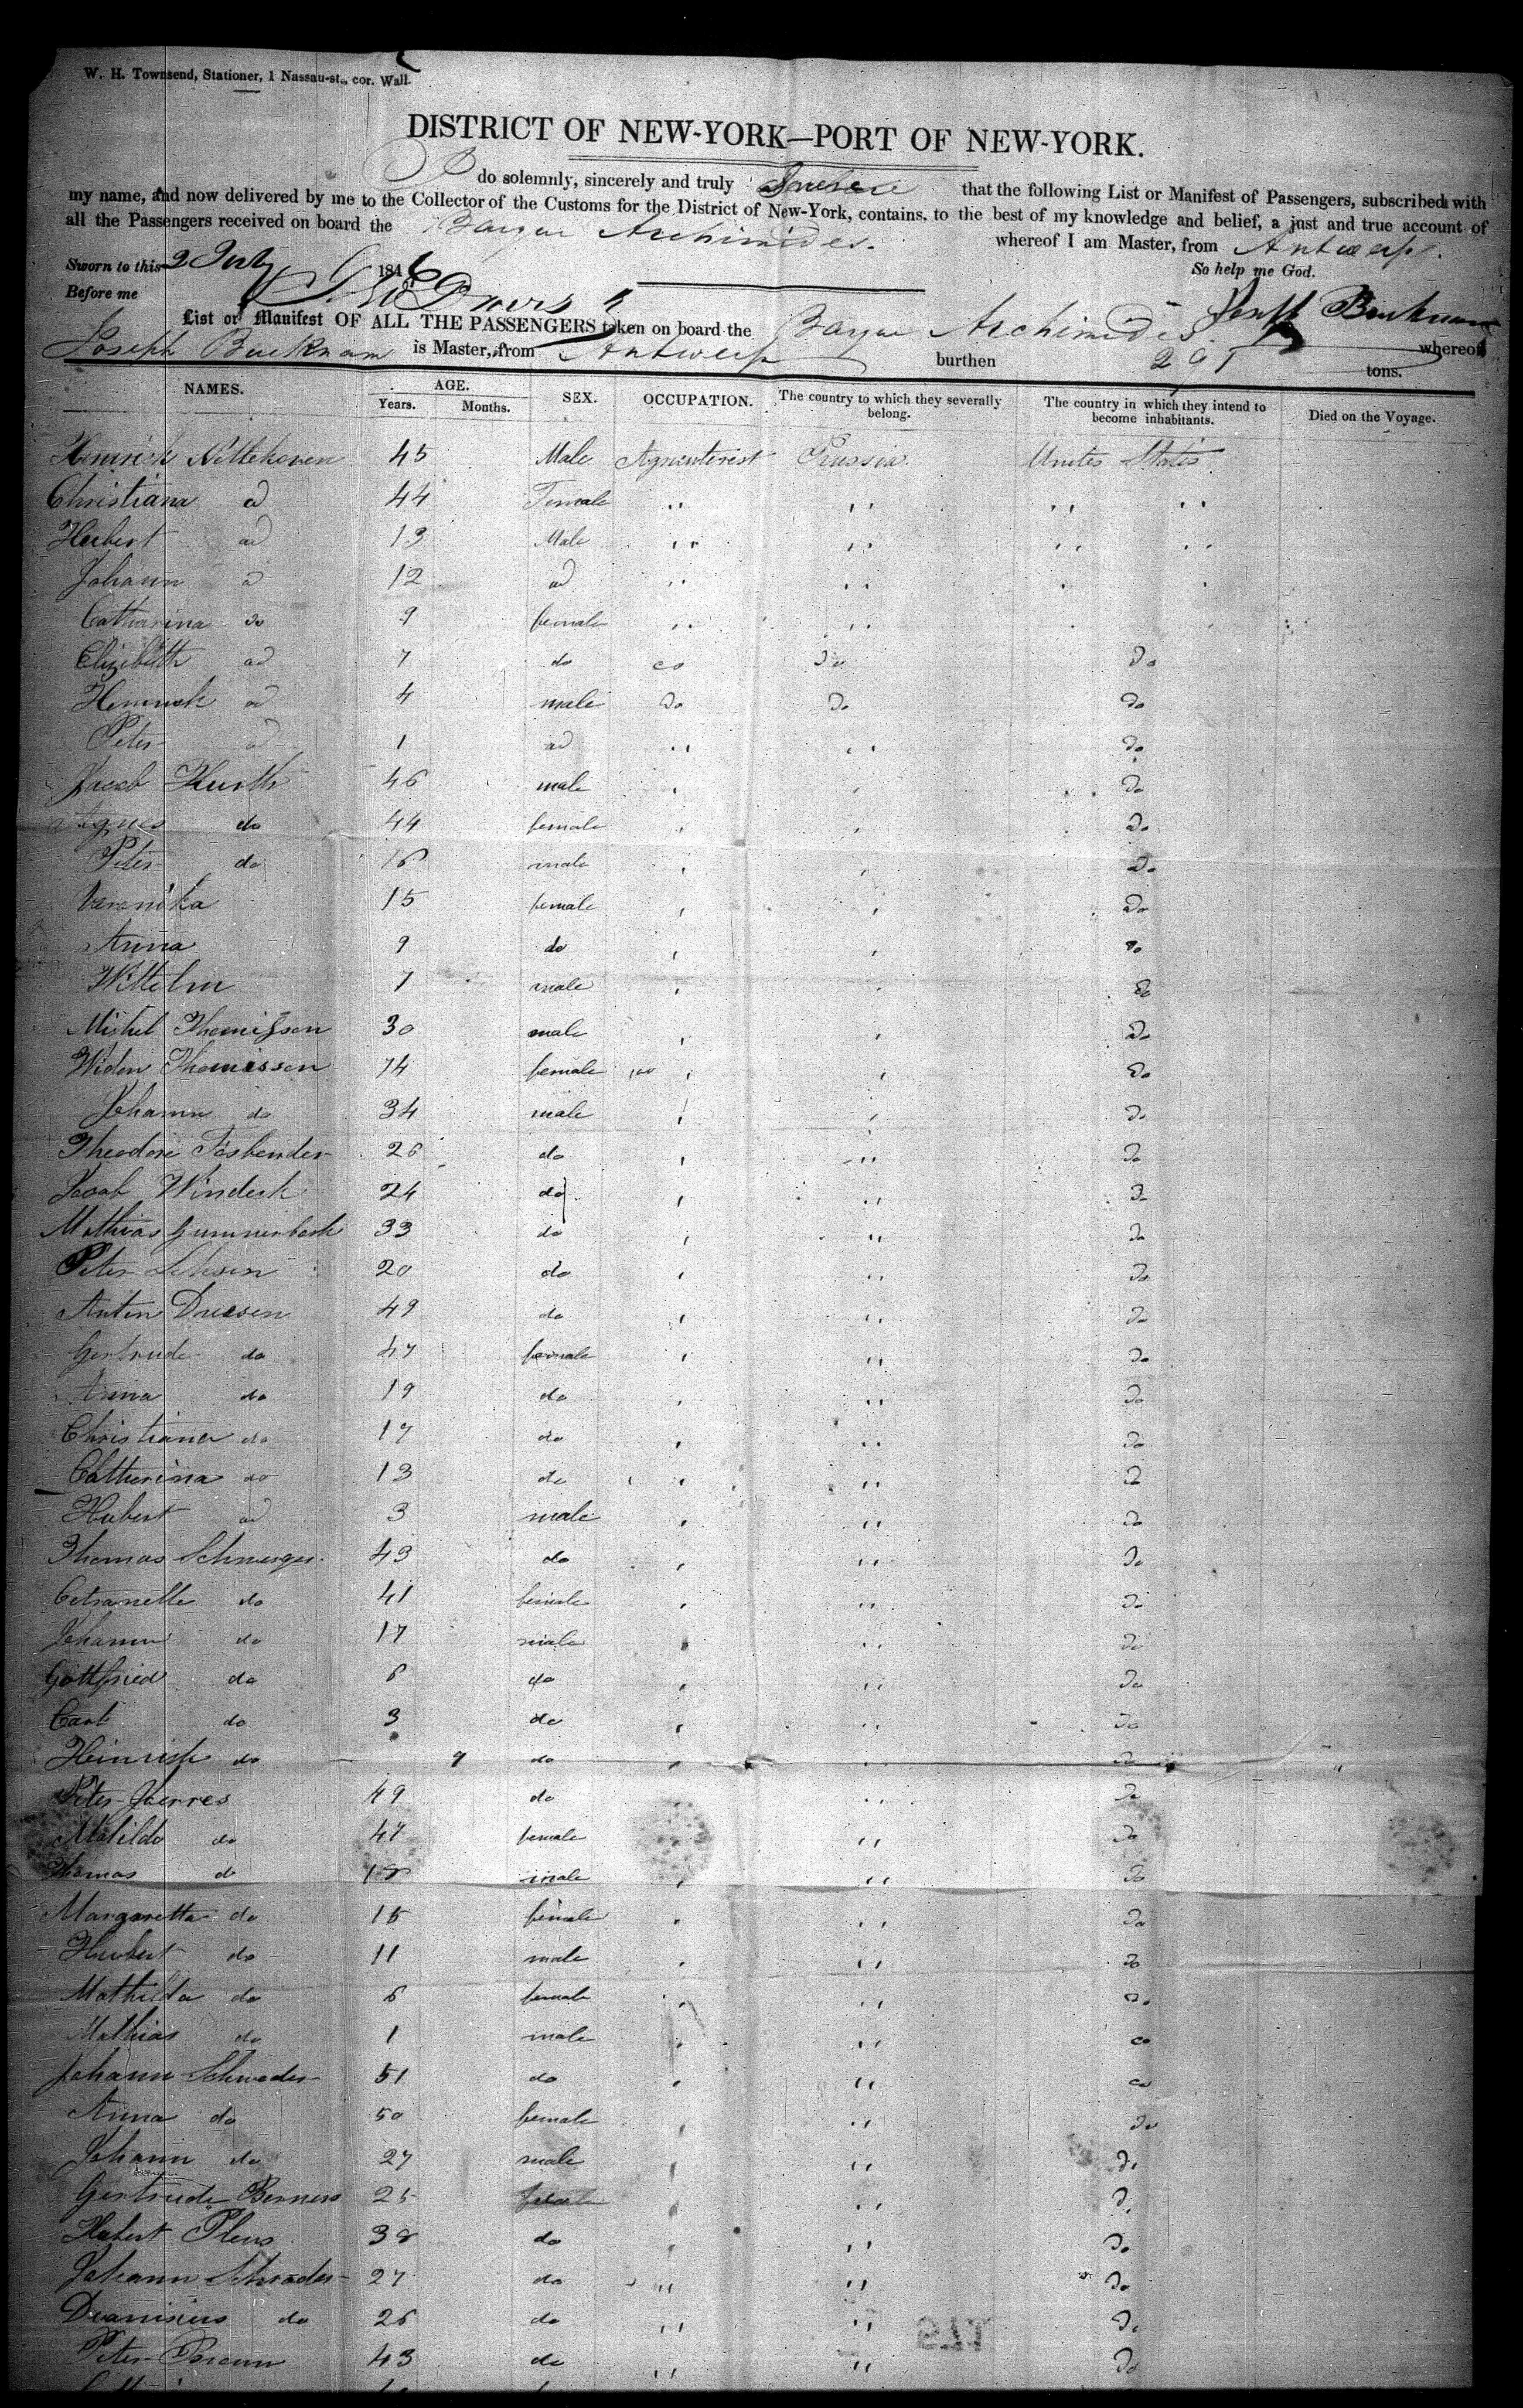 W. H. Townsend, Stationer, 1 Nassau-st., cor. Wall.
DISTRICT OF NEW-YORK—PORT OF NEW-YORK.
I do solemnly, sincerely and truly that the following List or Manifest of Passengers, subscribed with
my name, and now delivered by me to the Collector of the Customs for the District of New-York, contains, to the best of my knowledge and belief, a just and true account of
all the Passengers received on board the Barque Archimides. whereof I am Master, from Antwerp.
Sworn to this 2 July 1846 So help me God.
Before me
List or Manifest OF ALL THE PASSENGERS taken on board the Barque Archimides whereof
Joseph Bucknam is Master, from Antwerp burthen 291 tons.
NAMES. AGE. SEX. OCCUPATION. The country to which they severally belong. The country in which they intend to become inhabitants. Died on the Voyage.
Years. Months.
Heinrich 45 Male Prussia United States
Christiana do 44 Female " " " "
Hubert do 13 Male " " " "
Johann do 12 do " " " "
Catharina do 9 female " "
Elizibeth do 7 do do do do
Heinrich do 4 male do do do
Peter do 1 do " " do
Jacob Hurth 46 male " " do
Agnes do 44 female " " do
Peter do 16 male " " do
Varonika 15 female " " do
Anna 9 do " " do
Wilhelm 7 male " " do
Mishel Thomissen 30 male " " do
Thomissen 74 female " " do
Johann do 34 male " " do
Theodore Fasbender 26 do " " do
Jacob Windesh 24 do " " do
Mathias 33 do " " do
Peter 20 do " " do
Anton Driesen 49 do " " do
Gertrude do 47 female " " do
Anna do 19 do " " do
Christiana do 17 do " " do
Catherina do 13 do " " do
Hubert do 3 male " " do
Thomas 43 do " " do
do 41 female " " do
Johann do 17 male " " do
Gottfried do 6 do " " do
Carl do 3 do " " do
Heinrish do 9 do " " do
Peter Joerres 49 do " " do
Matilda do 47 female " " do
Thomas do 18 male " " do
Margaretta do 15 female " " do
Hubert do 11 male " " do
Mathilda do 6 female " " do
Mathias do 1 male " " do
Johann Schroder 51 do " " do
Anna do 50 female " " do
Johann do 27 male " " do
Gertrude 25 female " " do
Hubert Plens 38 do " " do
Johann Schroder 27 do " " do
do 26 do " " do
Peter 43 do " " do